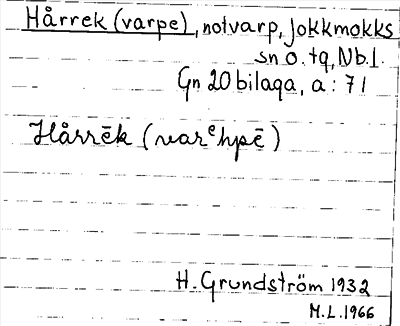 Hårrek (varpe), notvarp, Jokkmokks
sn o. tg, Nb.l.
Gn 20 bilaga, a: 71
Hårrēk (varᵉhpē)
H. Grundström 1932
M.L. 1966